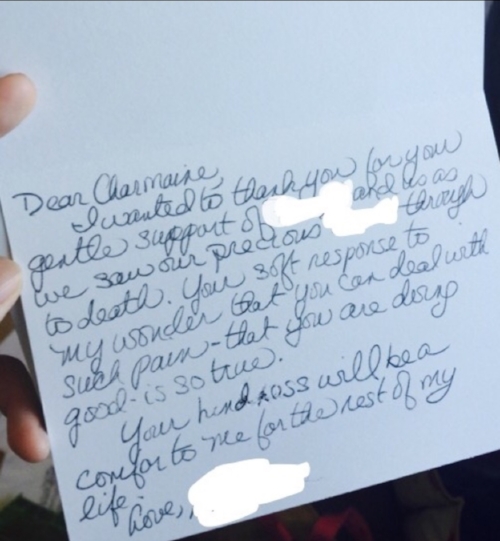 Dear Charmaine,
I wanted to thank you for you
gentle support of and us as
we saw our precious through
to death. Your soft response to
my wonder that you can deal with
such pain - that you are doing
good - is so true.
Your kindness will be a
comfor to me for the rest of my
life.
Love,